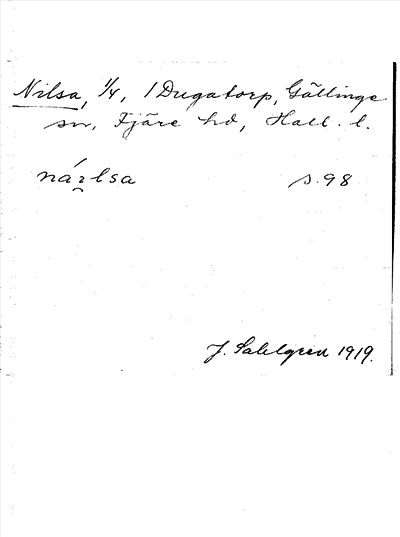 Nilsa, 1/4, 1 Dugatorp, Gällinge
sn, Fjäre hd, Hall. l.
s. 98
J. Sahlgren 1919.